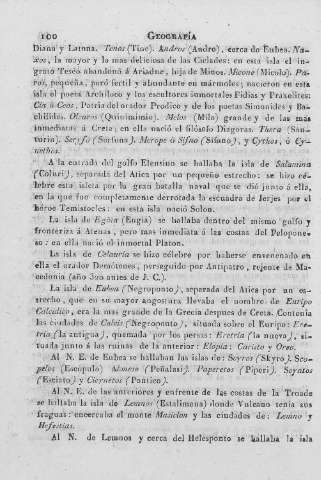 100 GEOGRAFÍA
Diana y Latona. Tenos (Tino). Andros (Andro), cerca de Eubea. Na-
xos, la mayor y la mas deliciosa de las Ciclades: en esta isla el in-
grato Teseo abandonó á Ariadne, hija de Minos. Micone (Micolo). Pa-
ros, pequeña, pero fertil y abundante en mármoles; nacieron en esta
isla el poeta Archiloco y los escultores inmortales Fidias y Praxiteles:
Cia ó Ceos, Patria del orador Prodico y de los poetas Simonides y Ba-
chilides. Olearos (Quintiminio). Melos (Milo) grande y de las mas
inmediatas á Creta; en ella nació el filósofo Diagoras. Thera (San-
torin). Serifo (Sorfuns). Merope ó Sifno (Sifano), y Cythos, ó Cy-
nethos.
A la entrada del golfo Elensino se hallaba la isla de Salamina
(Coluri), separada del Atica por un pequeño estrecho: se hizo cé-
lebre esta isleta por la gran batalla naval que se dió junto á ella,
en la que fue completamente derrotada la escuadra de Jerjes por el
héroe Temistocles: en esta isla nació Solon.
La isla de Egina (Engia) se hallaba dentro del mismo golfo y
fronteriza á Atenas, pero mas inmediata á las costas del Pelopone-
so: en ella nació el inmortal Platon.
La isla de Calauria se hizo célebre por haberse envenenado en
ella el orador Demóstenes, perseguido por Antipatro, rejente de Ma-
cedonia (año 322 antes de J. C.).
La isla de Eubea (Negroponto), separada del Atica por un es-
trecho, que en su mayor angostura llevaba el nombre de Euripo
Calcidico, era la mas grande de la Grecia despues de Creta. Contenia
las ciudades de Calcis (Negroponto), situada sobre el Euripo: Ere-
tria (la antigua), quemada por los persas: Eretria (la nueva), si-
tuada junto á las ruinas de la anterior: Elopia: Caristo y Oreo.
Al N. E. de Eubea se hallaban las islas de: Scyros (Skyro). Sco-
pelos (Escópulo) Aloneso (Peñalasi). Peparetos (Piperi). Scyatos
(Esciato) y Cicynetos (Pontico).
Al N. E. de las anteriores y enfrente de las costas de la Troade
se hallaba la isla de Lemnos (Estalimena) donde Vulcano tenia sus
fraguas: encerraba el monte Masiclon y las ciudades de: Lemno y
Hefestias.
Al N. de Lemnos y cerca del Helesponto se hallaba la isla